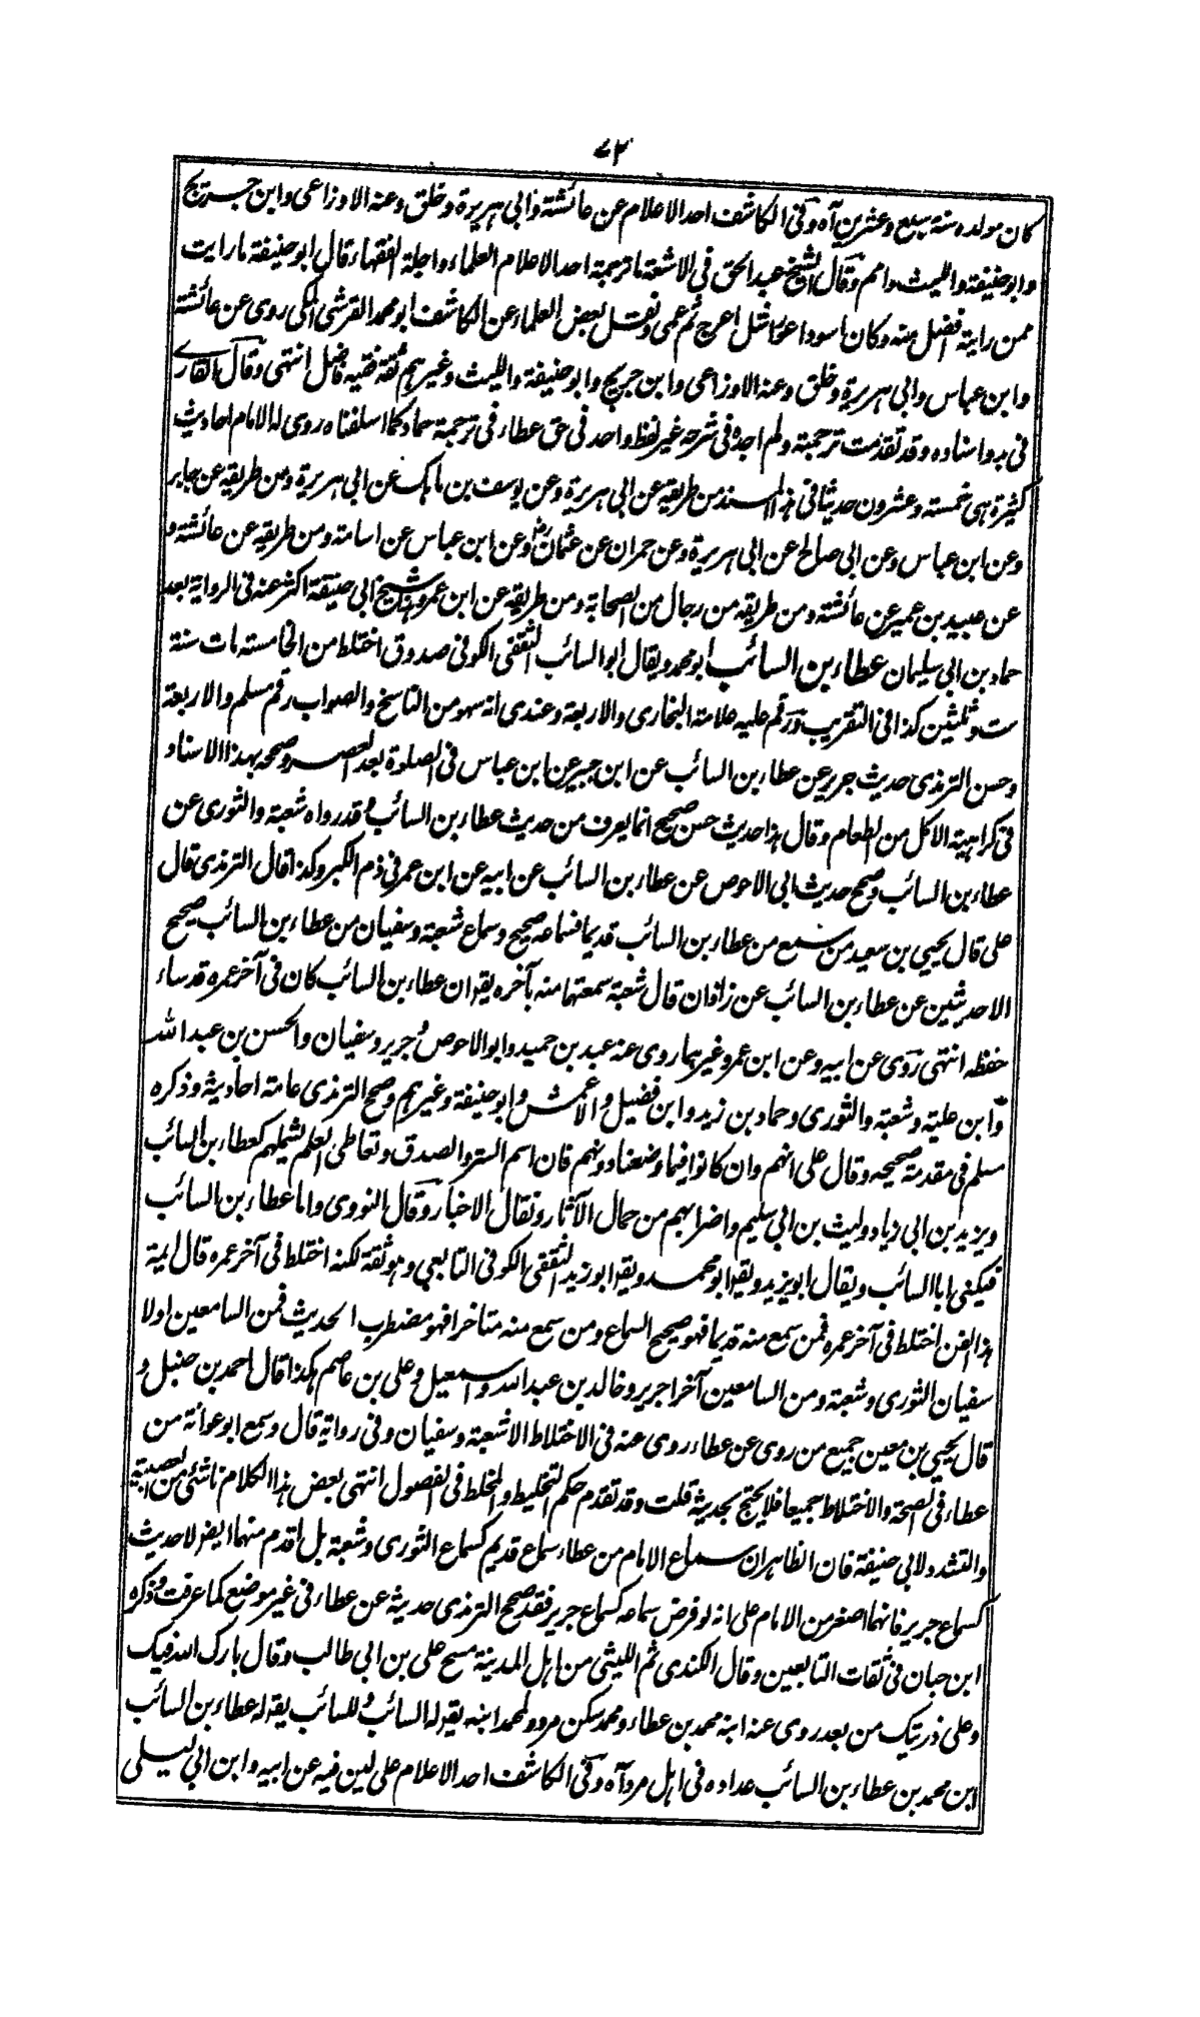 ٧٢
كان مولده سنة سبع وعشرين آه وفى الكاشف احد الاعلام عن عائشة وابى هريرة وخلق وعنه الاوزاعى وابن جريج
وابو حنيفة والليث وامم وقال الشيخ عبد الحق فى الاشعة ما ترجمته احد الاعلام العلماء واجلة الفقهاء قال ابو حنيفة ما رايت
ممن رايته افضل منه وكان اسود اعور اشل اعرج ثم عمى ونقل بعض العلماء عن الكاشف ابو محمد القرشى المكى روى عن عائشة
وابن عباس وابى هريرة وخلق وعنه الاوزاعى وابن جريج وابو حنيفة والليث وغيرهم ثقة فقيه فاضل انتهى وقال القارى
فى بدو اسناده وقد تقدمت ترجمته ولم اجده فى شرحه غير لفظ واحد فى حق عطاء فى ترجمة حماد كما اسلفناه روى له الامام احاديث
كثيرة هى خمسة وعشرون حديثا فى هذا المسند من طريقه عن ابى هريرة وعن يوسف بن ماهك عن ابى هريرة ومن طريقه عن جابر
وعن ابن عباس وعن ابى صالح عن ابى هريرة وعن حمران عن عثمان وعن ابن عباس عن اسامة ومن طريقه عن عائشة و
عن عبيد بن عمير عن عائشة ومن طريقه من رجال من الصحابة ومن طريقه عن ابن عمر وهذا شيخ ابى حنيفة اكثر عنه فى الرواية بعد
حماد بن ابى سليمان عطاء بن السائب ابو محمد ويقال ابو السائب الثقفى الكوفى صدوق اختلط من الخامسة مات سنة
ست وثلثين كذا فى التقريب ورقم عليه علامة البخارى والاربعة وعندى انه سهو من الناسخ والصواب رقم مسلم والاربعة
وحسن الترمذى حديث جرير عن عطاء بن السائب عن ابن جبير عن ابن عباس فى الصلوة بعد العصر وصححه بهذا الاسناد
فى كراهية الاكل من الطعام وقال هذا حديث حسن صحيح انما يعرف من حديث عطاء بن السائب وقد رواه شعبة والثورى عن
عطاء بن السائب وصحح حديث ابى الاحوص عن عطاء بن السائب عن ابيه عن ابن عمر فى ذم الكبر وكذا قال الترمذى قال
على قال يحيى بن سعيد من سمع من عطاء بن السائب قديما فسماعه صحيح وسماع شعبة وسفيان من عطاء بن السائب صحيح
الا حديثين عن عطاء بن السائب عن زاذان قال شعبة سمعتهما منه بآخره يقو ان عطاء بن السائب كان فى آخر عمره قد ساء
حفظه انتهى روى عن ابيه وعن ابن عمر وغيرهما روى عنه عبد بن حميد وابو الاحوص وجرير وسفيان والحسن بن عبد الله
وابن علية وشعبة والثورى وحماد بن زيد وابن فضيل والاعمش وابو حنيفة وغيرهم وصحح الترمذى عامة احاديثه وذكره
مسلم فى مقدمة صحيحه وقال على انهم وان كانوا فيما وضعناه دونهم فان اسم الستر والصدق وتعاطى العلم يشملهم كعطاء بن السائب
ويزيد بن ابى زياد وليث بن ابى سليم واضرابهم من حمال الآثار ونقال الاخبار وقال النووى واما عطاء بن السائب
فيكنى ابا السائب ويقال ابو يزيد ويقو ابو محمد ويقو ابو زيد الثقفى الكوفى التابعى وهو ثقة لكنه اختلط فى آخر عمره قال ايمة
هذا الفن اختلط فى آخر عمره فمن سمع منه قديما فهو صحيح السماع ومن سمع منه متاخرا فهو مضطرب الحديث فمن السامعين اولا
سفيان الثورى وشعبة ومن السامعين آخرا جرير وخالد بن عبد الله واسمعيل وعلى بن عاصم هكذا قال احمد بن حنبل و
قال يحيى بن معين جميع من روى عن عطاء روى عنه فى الاختلاط الا شعبة وسفيان وفى رواية قال وسمع ابو عوانة من
عطاء فى الصحة والاختلاط جميعا فلا يحتج بحديثه قلت وقد تقدم حكم التخليط والمخلط فى الفصول انتهى بعض هذا الكلام ناشئ من العصبية
والتشدد لابى حنيفة فان الظاهر ان سماع الامام من عطاء سماع قديم كسماع الثورى وشعبة بل اقدم منهما ايضا لا حديث
كسماع جرير فانهما اصغر من الامام على انه لو فرض سماعه كسماع جرير فقد صحح الترمذى حديثه عن عطاء فى غير موضع كما عرفت وذكره
ابن حبان فى ثقات التابعين وقال الكندى ثم الليثى من اهل المدينة مسح على بن ابى طالب وقال بارك الله فيك
وعلى ذريتك من بعد روى عنه ابنه محمد بن عطاء ومحمد سكن مرو ولمحمد ابنه يقو له السائب وللسائب يقو له عطاء بن السائب
ابن محمد بن عطاء بن السائب عداده فى اهل مرو آه وفى الكاشف احد الاعلام على لين فيه عن ابيه وابن ابى ليلى